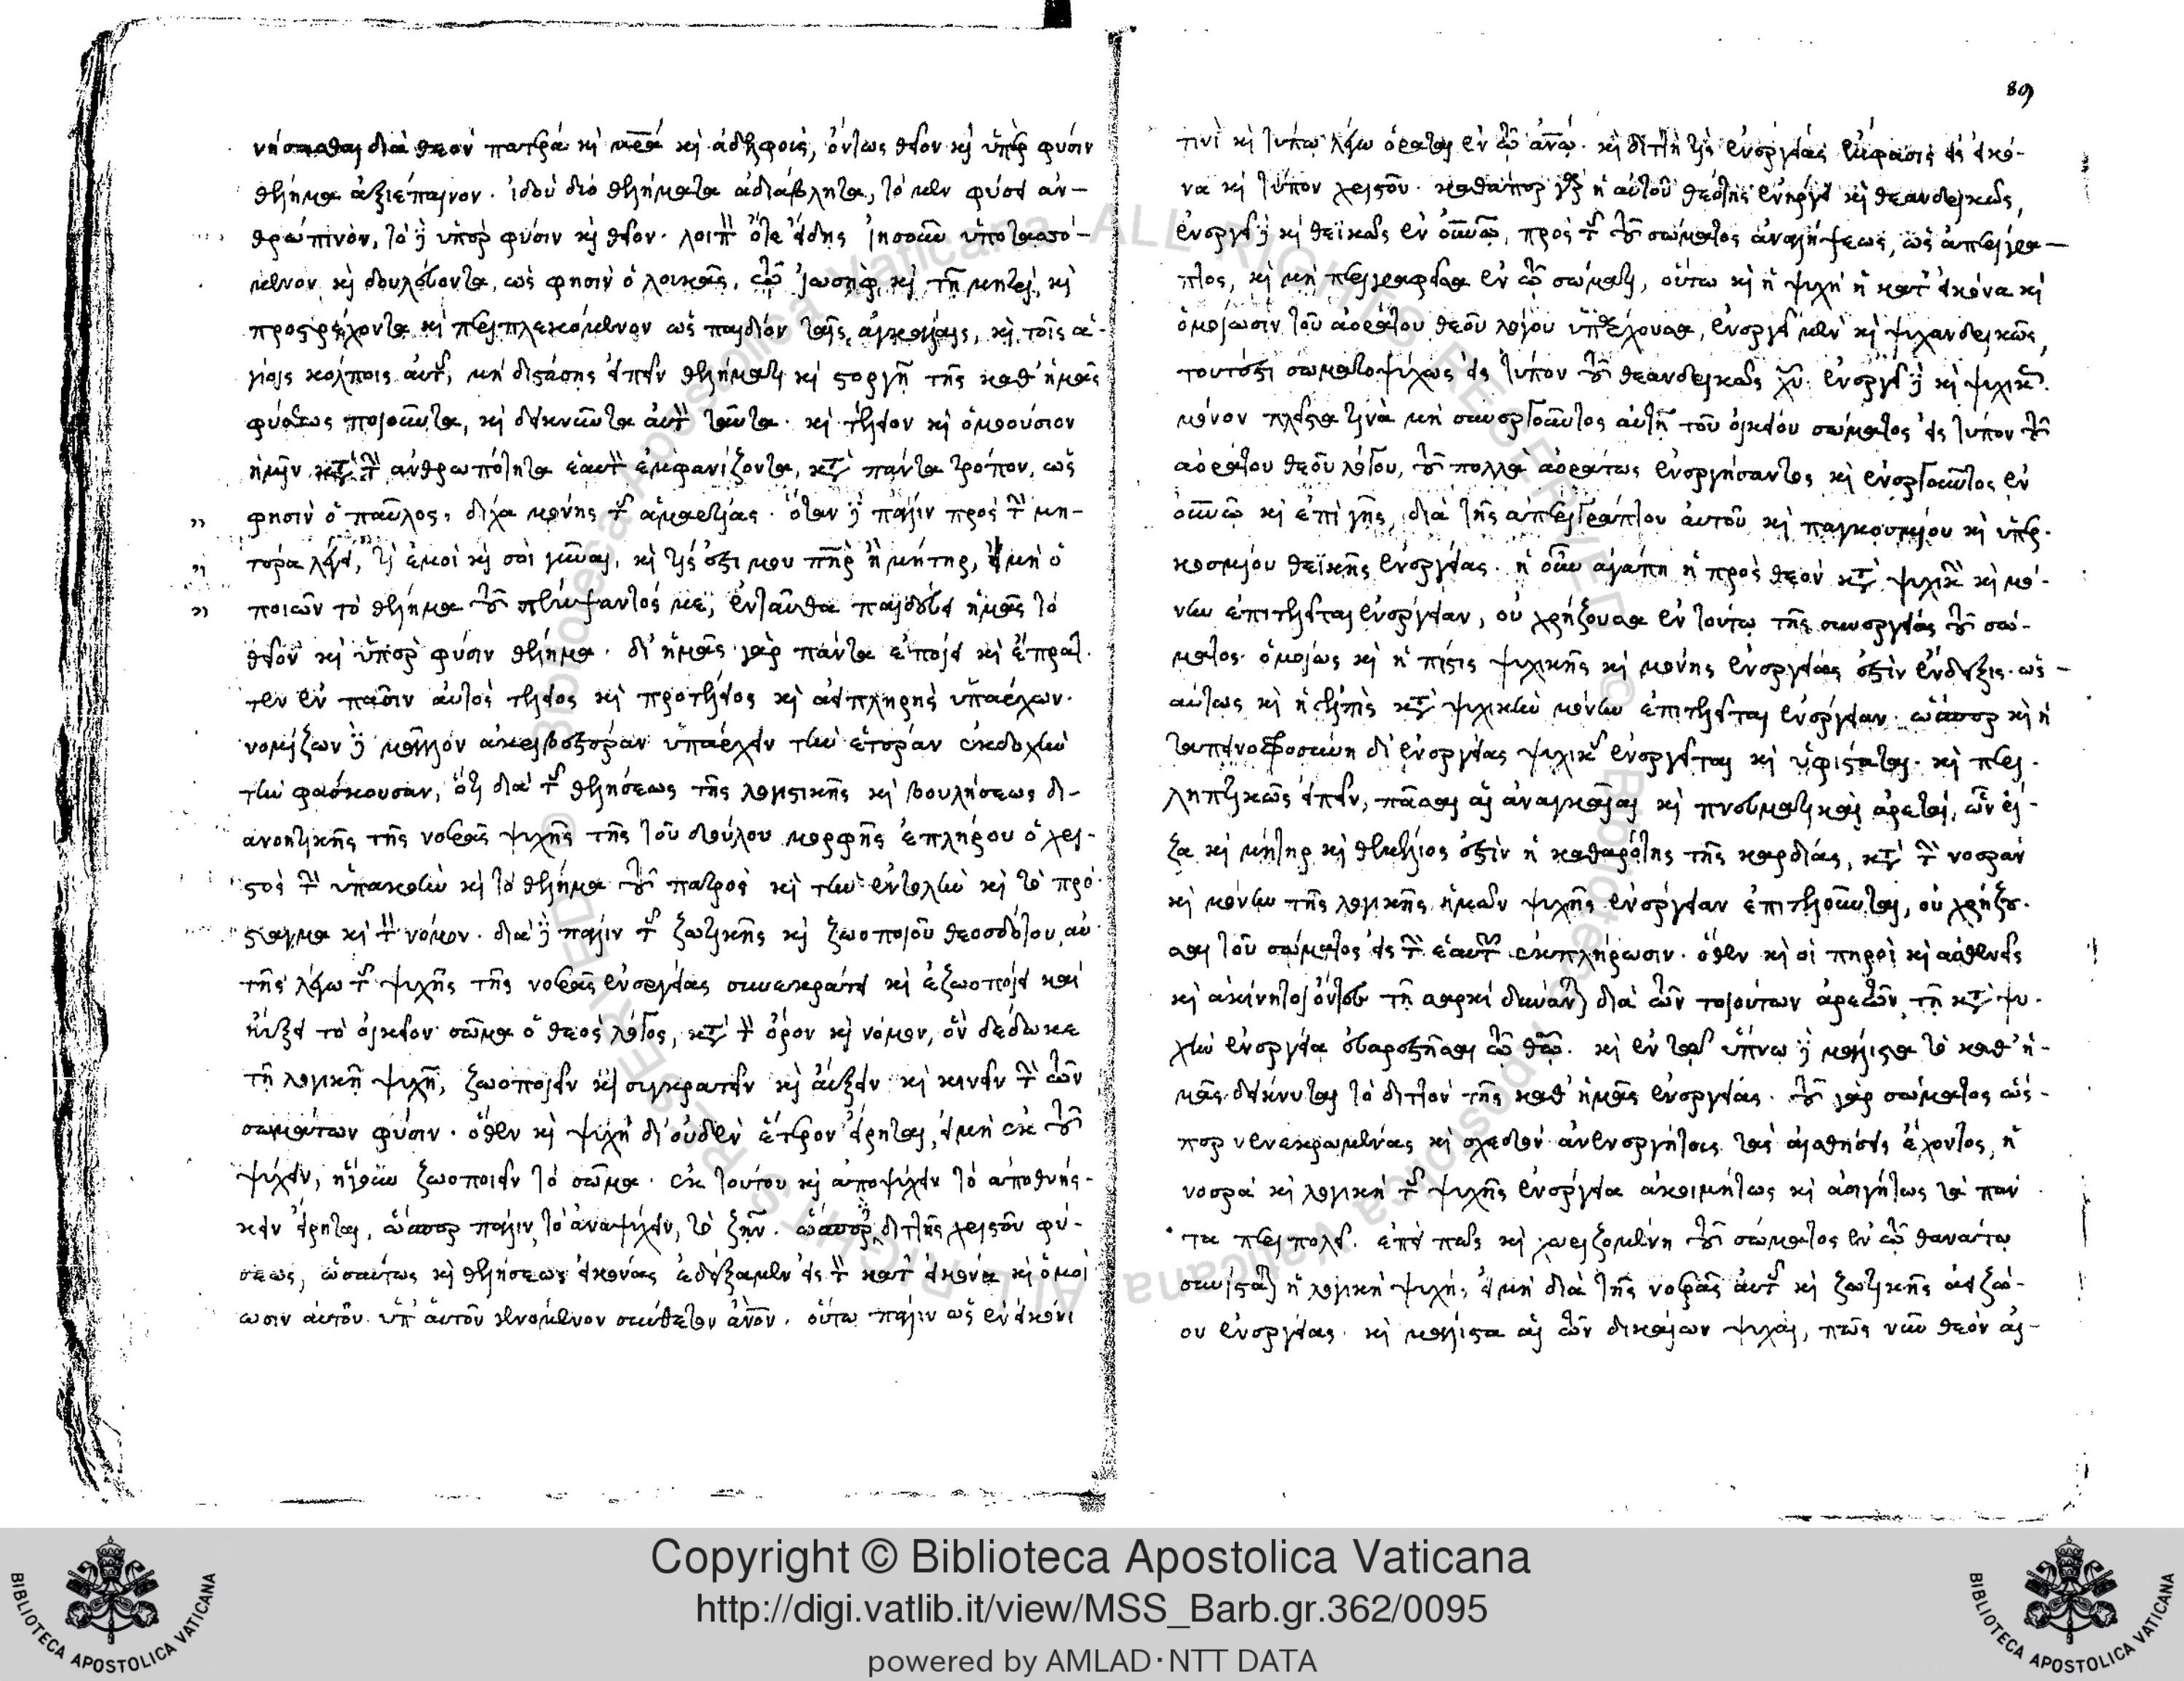 νήσασθαι διὰ θεὸν πατέρα καὶ μητέρα καὶ ἀδελφοὺς, ὄντως θεῖον καὶ ὑπὲρ φύσιν
θέλημα ἀξιέπαινον. ἰδοὺ δύο θελήματα ἀδιάβλητα, τὸ μὲν φύσει ἀν-
θρώπινον, τὸ δὲ ὑπὲρ φύσιν καὶ θεῖον. λοιπὸν ὅτε ἴδῃς ἰησοῦν ὑποτασσό-
μενον καὶ δουλεύοντα, ὡς φησὶν ὁ λουκᾶς, τῷ ἰωσὴφ καὶ τῇ μητρὶ, καὶ
προστρέχοντα καὶ περιπλεκόμενον ὡς παιδίον ταῖς ἀγκάλαις, καὶ τοῖς ἁ-
γίοις κόλποις αὐτῆς, μὴ διστάσῃς εἰπεῖν θελήματι καὶ στοργῇ τῆς καθ' ἡμᾶς
φύσεως ποιοῦντα, καὶ δεικνῦντα αὐτὸν ταῦτα. καὶ τέλειον καὶ ὁμοούσιον
ἡμῖν κατὰ τὴν ἀνθρωπότητα ἑαυτὸν ἐμφανίζοντα, κατὰ πάντα τρόπον, ὥς
φησιν ὁ παῦλος, δίχα μόνης τῆς ἁμαρτίας. ὅταν δὲ πάλιν πρὸς τὴν μη-
τέρα λέγει, τί ἐμοὶ καὶ σοὶ γύναι, καὶ τίς ἐστί μου πατὴρ ἢ μήτηρ, εἰ μὴ ὁ
ποιῶν τὸ θέλημα τοῦ πέμψαντός με, ἐνταῦθα παιδεύει ἡμᾶς τὸ
θεῖον καὶ ὑπὲρ φύσιν θέλημα. δι' ἡμᾶς γὰρ πάντα ἐποίει καὶ ἔπρατ-
τεν ἐν πᾶσιν αὐτὸς τέλειος καὶ προτέλειος καὶ ἀειπλήρης ὑπάρχων.
νομίζων δὲ μᾶλλον ἀκριβεστέραν ὑπάρχειν τὴν ἑτέραν ἐκδοχὴν
τὴν φάσκουσαν, ὅτι διὰ τῆς θελήσεως τῆς λογιστικῆς καὶ βουλήσεως δι-
ανοητικῆς τῆς νοερᾶς ψυχῆς τῆς τοῦ δούλου μορφῆς ἐπλήρου ὁ χρι-
στὸς τὴν ὑπακοὴν καὶ τὸ θέλημα τοῦ πατρὸς καὶ τὴν ἐντολὴν καὶ τὸ πρό-
σταγμα καὶ τὸν νόμον. διὰ δὲ πάλιν τῆς ζωτικῆς καὶ ζωοποιοῦ θεοσδότου, αὐ-
τῆς λέγω τῆς ψυχῆς τῆς νοερᾶς ἐνεργείας συνεκράτει καὶ ἐζωοποίει καὶ
ηὔξει τὸ οἰκεῖον σῶμα ὁ θεὸς λόγος, κατὰ τὸν ὅρον καὶ νόμον, ὃν δέδωκε
τῇ λογικῇ ψυχῇ, ζωοποιεῖν καὶ συγκρατεῖν καὶ αὔξειν καὶ κινεῖν τὴν τῶν
σωμάτων φύσιν. ὅθεν καὶ ψυχὴ δι' οὐδὲν ἕτερον εἴρηται, εἰ μὴ ἐκ τοῦ
ψύχειν, ἤγουν ζωοποιεῖν τὸ σῶμα. ἐκ τούτου καὶ ἀποψύχειν τὸ ἀποθνήσ-
κειν εἴρηται, ὥσπερ πάλιν τὸ ἀναψύχειν, τὸ ζῆν. ὥσπερ διττῆς χριστοῦ φύ-
σεως, ὡσαύτως καὶ θελήσεως εἰκόνας ἐδείξαμεν εἰς τὸν κατ' εἰκόνα καὶ ὁμοί-
ωσιν αὐτοῦ ὑπ' αὐτοῦ γενόμενον σύνθετον ἄνθρωπον. οὕτω πάλιν ὡς ἐν εἰκόνι
89
τινὶ καὶ τύπῳ λέγω ὁρᾶται ἐν τῷ ἀνθρώπῳ. καὶ διττὴ τῆς ἐνεργείας ἔμφασις εἰς εἰκό-
να καὶ τύπον χριστοῦ. καθάπερ γὰρ ἡ αὐτοῦ θεότης ἐνήργει καὶ θεανδρικῶς,
ἐνεργεῖ δὲ καὶ θεϊκῶς ἐν οὐρανῷ, πρὸς τῆς τοῦ σώματος ἀναλήψεως, ὡς ἀπερίγρα-
πτος, καὶ μὴ περιγραφεῖσα ἐν τῷ σώματι, οὕτω καὶ ἡ ψυχὴ ἡ κατ' εἰκόνα καὶ
ὁμοίωσιν τοῦ ἀοράτου θεοῦ λόγου ὑπάρχουσα, ἐνεργεῖ μὲν καὶ ψυχανδρικῶς,
τουτέστι σωματοψύχως εἰς τύπον τοῦ θεανδρικῶς χριστοῦ. ἐνεργεῖ δὲ καὶ ψυχικῶς
μόνον πλεῖστα τινὰ μὴ συνεργοῦντος αὐτῇ τοῦ οἰκείου σώματος εἰς τύπον τοῦ
ἀοράτου θεοῦ λόγου, τοῦ πολλὰ ἀοράτως ἐνεργήσαντος καὶ ἐνεργοῦντος ἐν
οὐρανῷ καὶ ἐπὶ γῆς, διὰ τῆς ἀπεριγράπτου αὐτοῦ καὶ παγκοσμίου καὶ ὑπερ-
κοσμίου θεϊκῆς ἐνεργείας. ἡ οὖν ἀγάπη ἡ πρὸς θεὸν κατὰ ψυχικὴν καὶ μό-
νην ἐπιτελεῖται ἐνέργειαν, οὐ χρῄζουσα ἐν τούτῳ τῆς συνεργείας τοῦ σώ-
ματος. ὁμοίως καὶ ἡ πίστις ψυχικῆς καὶ μόνης ἐνεργείας ἐστὶν ἔνδειξις. ὡσ-
αύτως καὶ ἡ ἐλπὶς κατὰ ψυχικὴν μόνην ἐπιτελεῖται ἐνέργειαν. ὥσπερ καὶ ἡ
ταπεινοφροσύνη δι' ἐνεργείας ψυχικῆς ἐνεργεῖται καὶ ὑφίσταται. καὶ περι-
ληπτικῶς εἰπεῖν, πᾶσαι αἱ ἀναγκαῖαι καὶ πνευματικαὶ ἀρεταὶ, ὧν ῥί-
ζα καὶ μήτηρ καὶ θεμέλιος ἐστὶν ἡ καθαρότης τῆς καρδίας, κατὰ τὴν νοερὰν
καὶ μόνην τῆς λογικῆς ἡμῶν ψυχῆς ἐνέργειαν ἐπιτελοῦνται, οὐ χρῄζου-
σαι τοῦ σώματος εἰς τὴν ἑαυτῶν ἐκπλήρωσιν. ὅθεν καὶ οἱ πηροὶ καὶ ἀσθενεῖς
καὶ ἀκίνητοι ὄντες τῇ σαρκὶ δύνανται διὰ τῶν τοιούτων ἀρετῶν τῇ κατὰ ψυ-
χὴν ἐνεργείᾳ εὐαρεστῆσαι τῷ θεῷ. καὶ ἐν τῷ ὕπνῳ δὲ μάλιστα τὸ καθ' ἡ-
μᾶς δείκνυται τὸ διττὸν τῆς καθ' ἡμᾶς ἐνεργείας. τοῦ γὰρ σώματος ὥσ-
περ νενεκρωμένας καὶ σχεδὸν ἀνενεργήτους τὰς αἰσθήσεις ἔχοντος, ἡ
νοερὰ καὶ λογικὴ τῆς ψυχῆς ἐνέργεια ἀκοιμήτως καὶ ἀσιγήτως τὰ πάν-
τα περιπολεῖ. ἐπεὶ πῶς καὶ χωριζομένη τοῦ σώματος ἐν τῷ θανάτῳ
συνίσταται ἡ λογικὴ ψυχή, εἰ μὴ διὰ τῆς νοερᾶς αὐτῆς καὶ ζωτικῆς ἀειζώ-
ου ἐνεργείας. καὶ μάλιστα αἱ τῶν δικαίων ψυχαὶ, πῶς νῦν θεὸν αἰ-
Copyright © Biblioteca Apostolica Vaticana
http://digi.vatlib.it/view/MSS_Barb.gr.362/0095
powered by AMLAD·NTT DATA
BIBLIOTECA APOSTOLICA VATICANA
BIBLIOTECA APOSTOLICA VATICANA